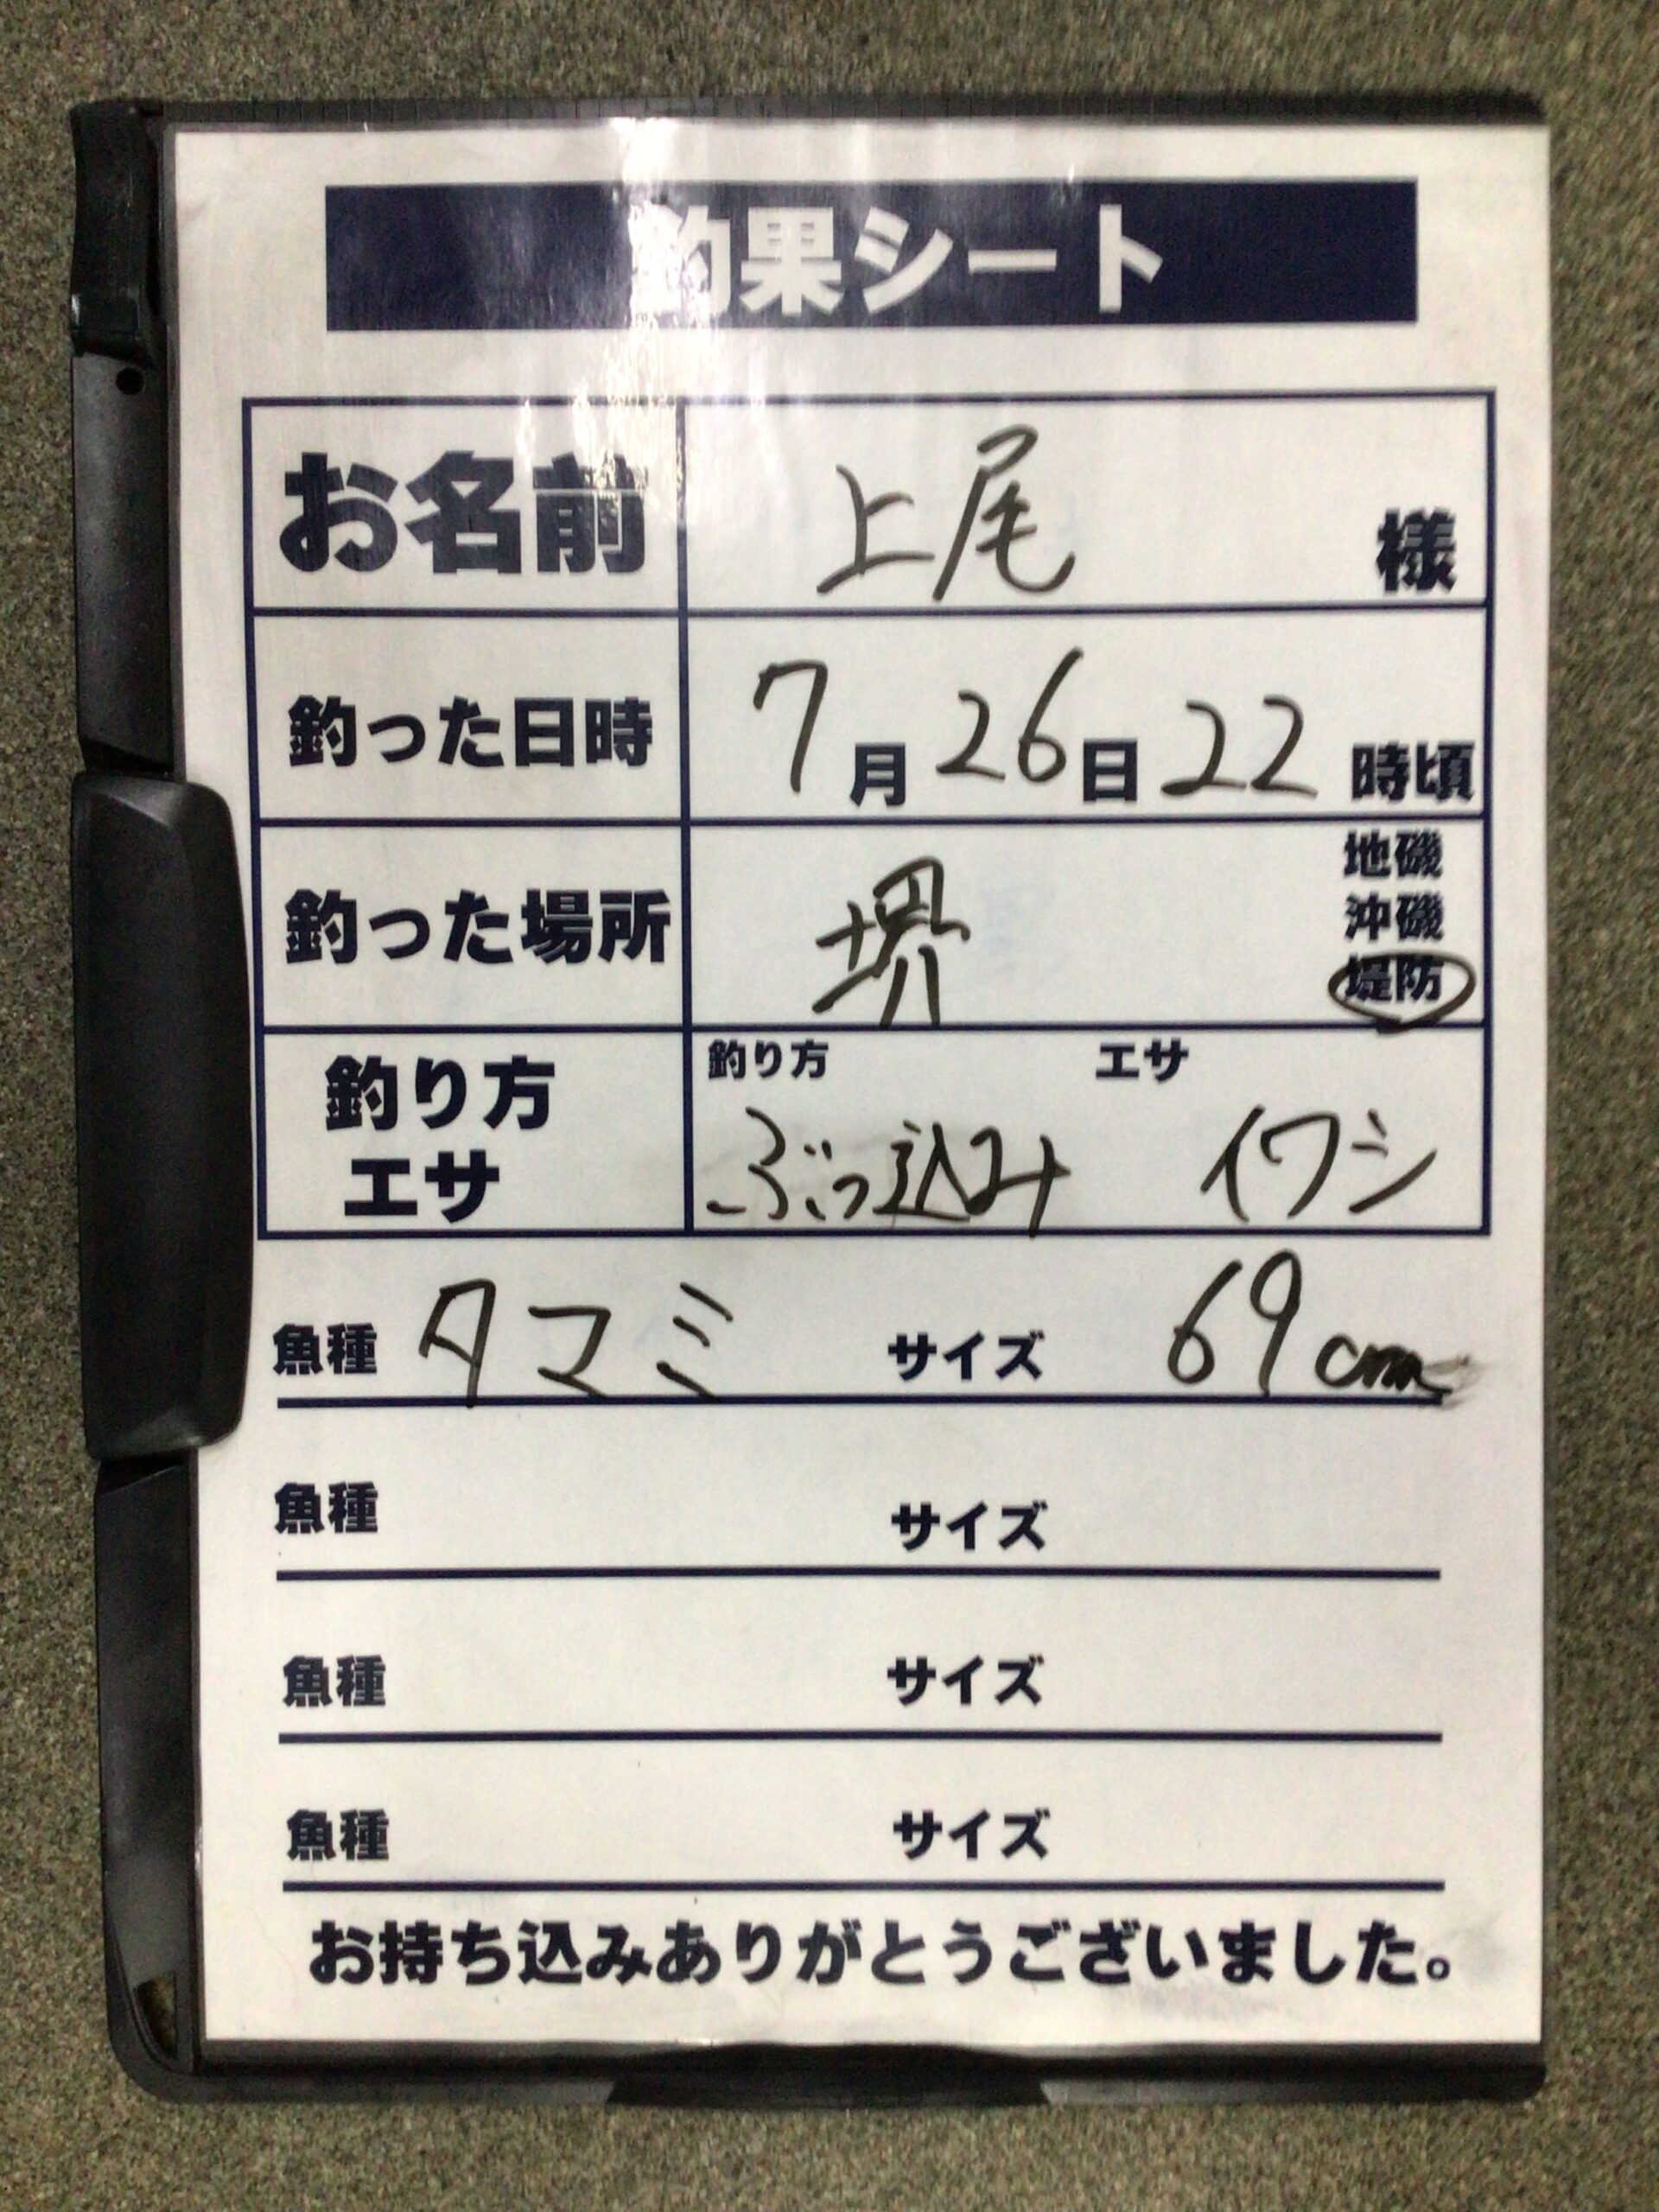 釣果シート
お名前 上尾 様
釣った日時 7月26日22時頃
釣った場所 堺
地磯
沖磯
堤防
釣り方
エサ
釣り方 エサ
ぶっ込み イワシ
魚種 タマミ サイズ 69cm
魚種 サイズ
魚種 サイズ
魚種 サイズ
お持ち込みありがとうございました。